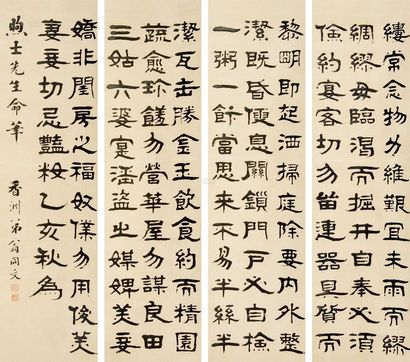 黎明即起洒掃庭除要内外整
潔既昏便息關鎖門戶必自檢
一粥一飯當思來不易半絲半
縷常念物力維艱宜未雨而繆
綢繆毋臨渴而掘井自奉必須
儉約宴客切勿留連器具質而
潔瓦缶勝金玉飲食約而精園
蔬愈珍饈勿營華屋勿謀良田
三姑六婆寔淫盜之媒婢美妾
嬌非閨房之福奴僕勿用俊美
妻妾切忌豔妝乙亥秋為
煦士先生命筆 香洲弟翁同文